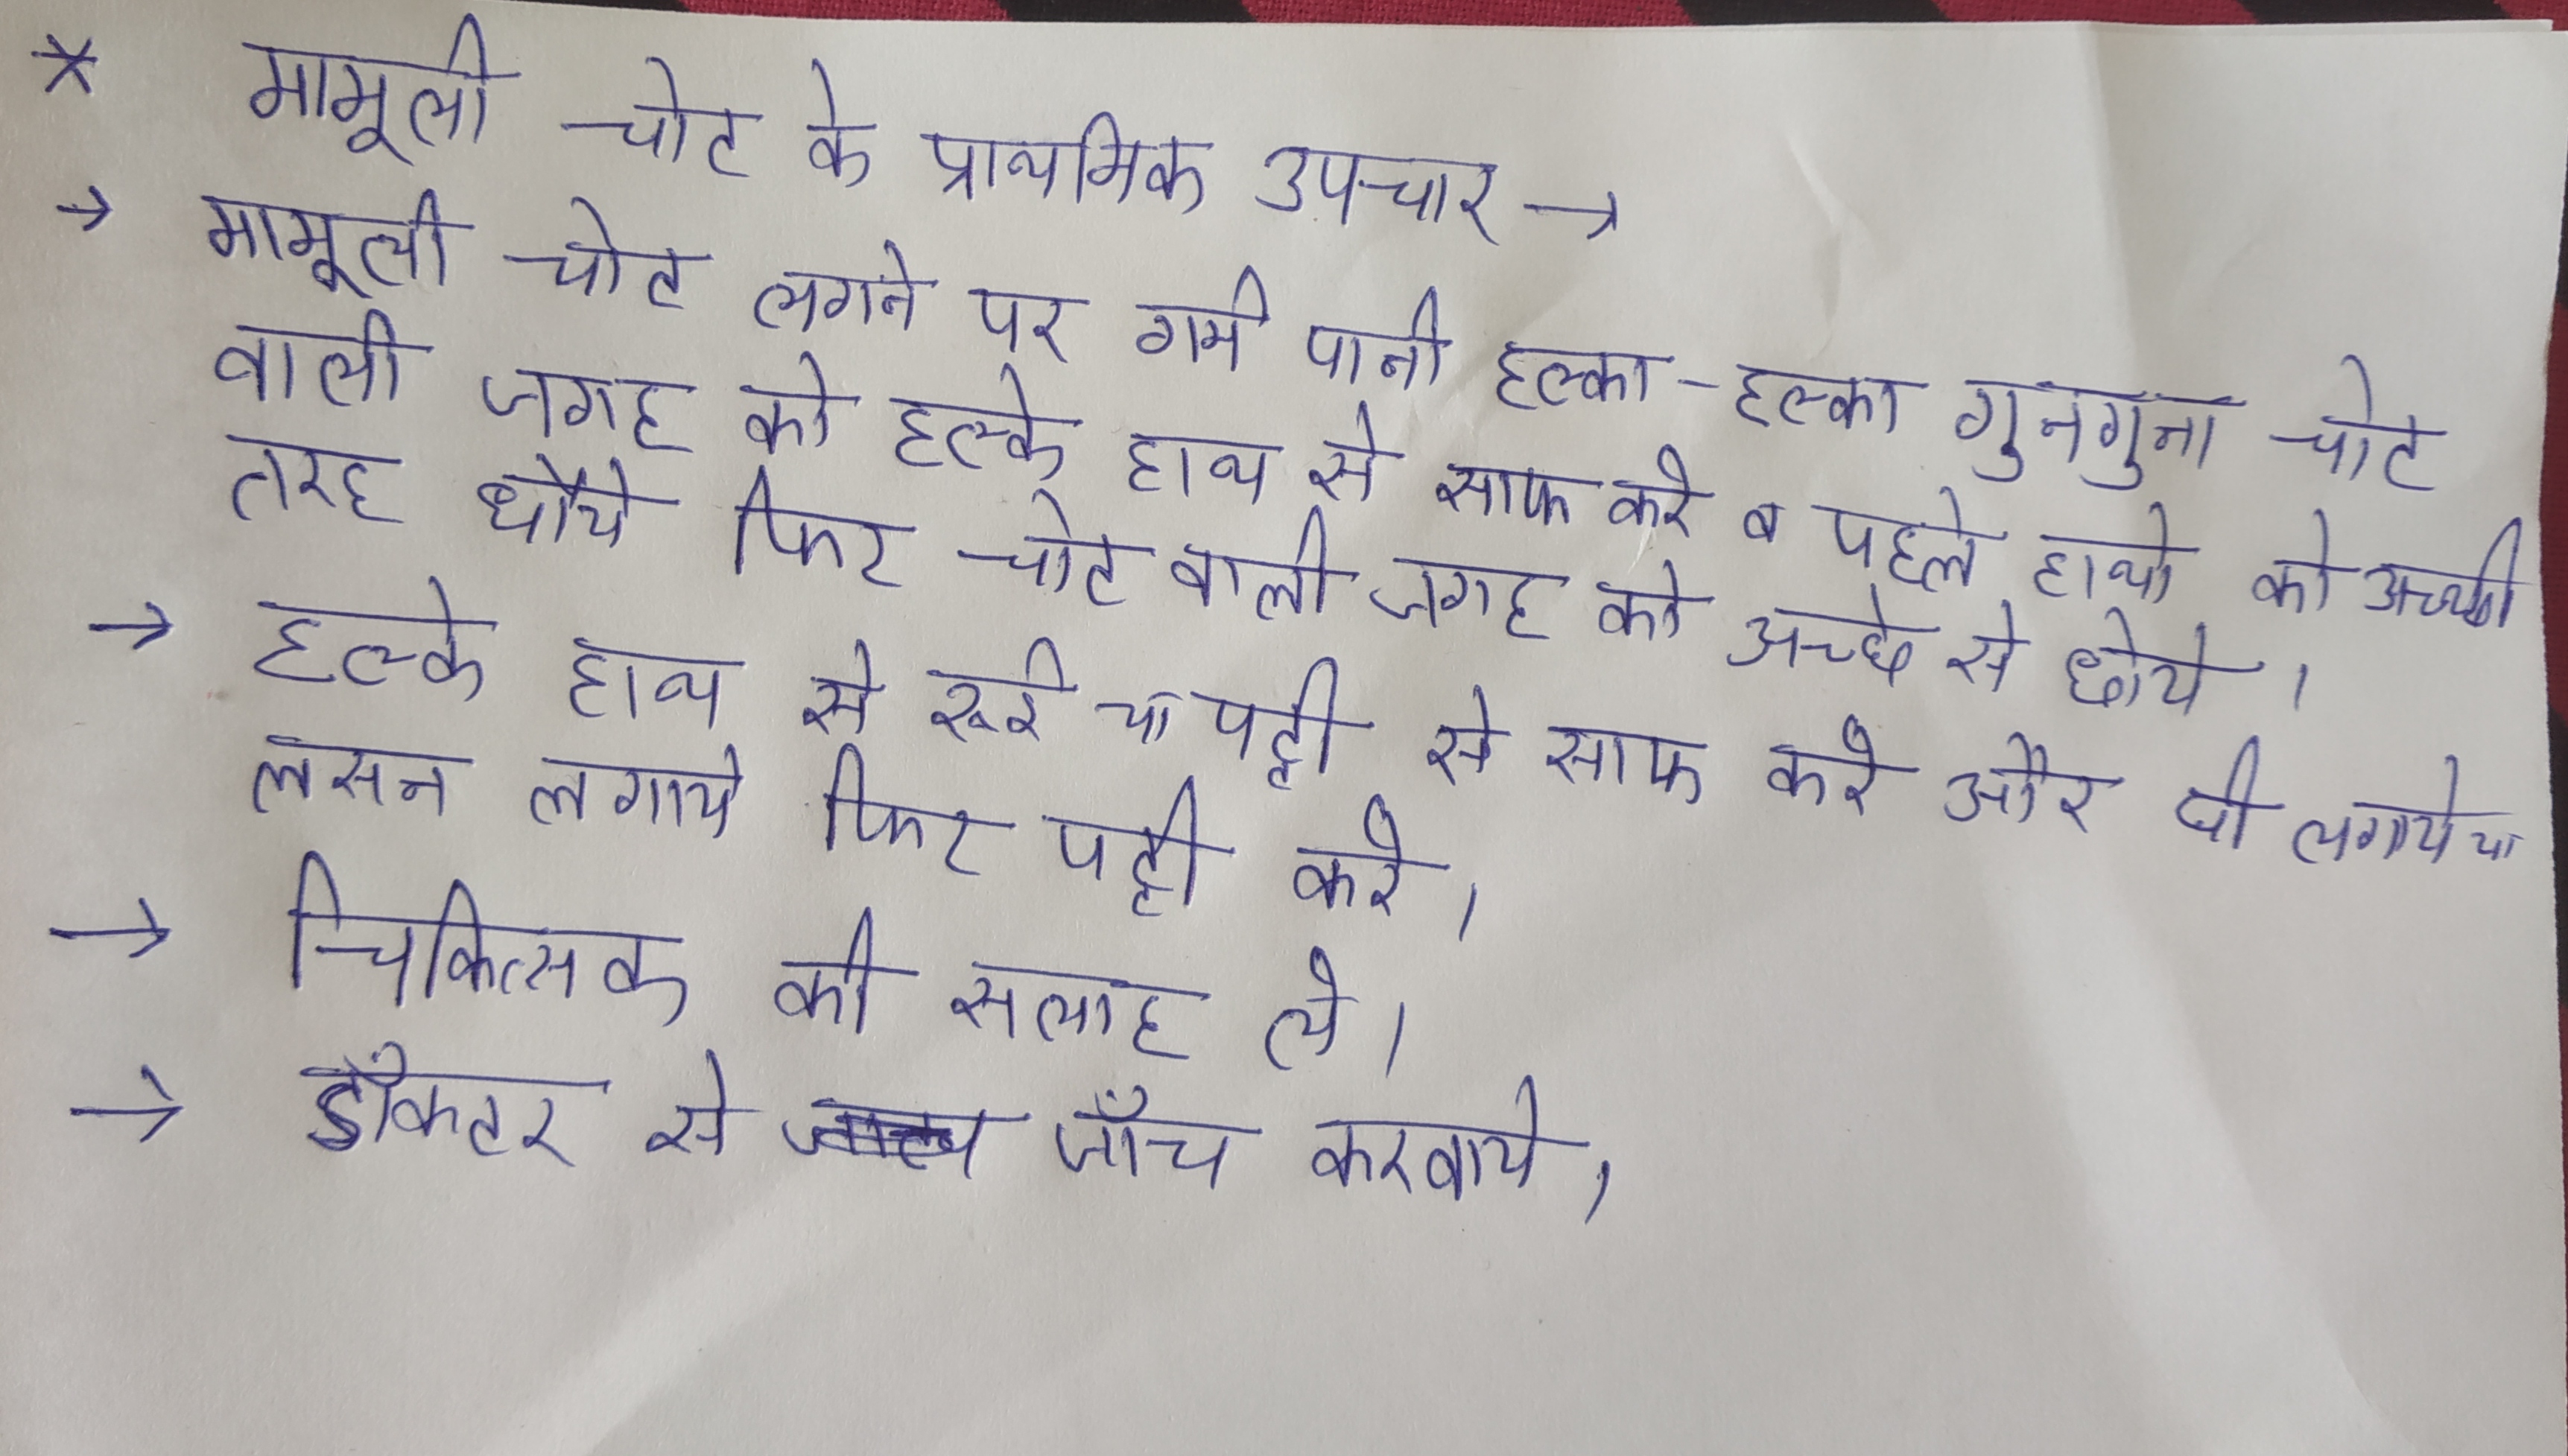 * मामूली चोट के प्राथमिक उपचार →
→ मामूली चोट लगने पर गर्म पानी हल्का - हल्का गुनगुना चोट
वाली जगह को हल्के हाथ से साफ करे व पहले हाथो को अच्छी
तरह धौये फिर चोट वाली जगह को अच्छे से धोये ।
→ हल्के हाथ से रूई या पट्टी से साफ करे और घी लगाये या
लसन लगाये फिर पट्टी करे ।
→ चिकित्सक की सलाह ले ।
→ डॉक्टर से जाँच करवाये ।